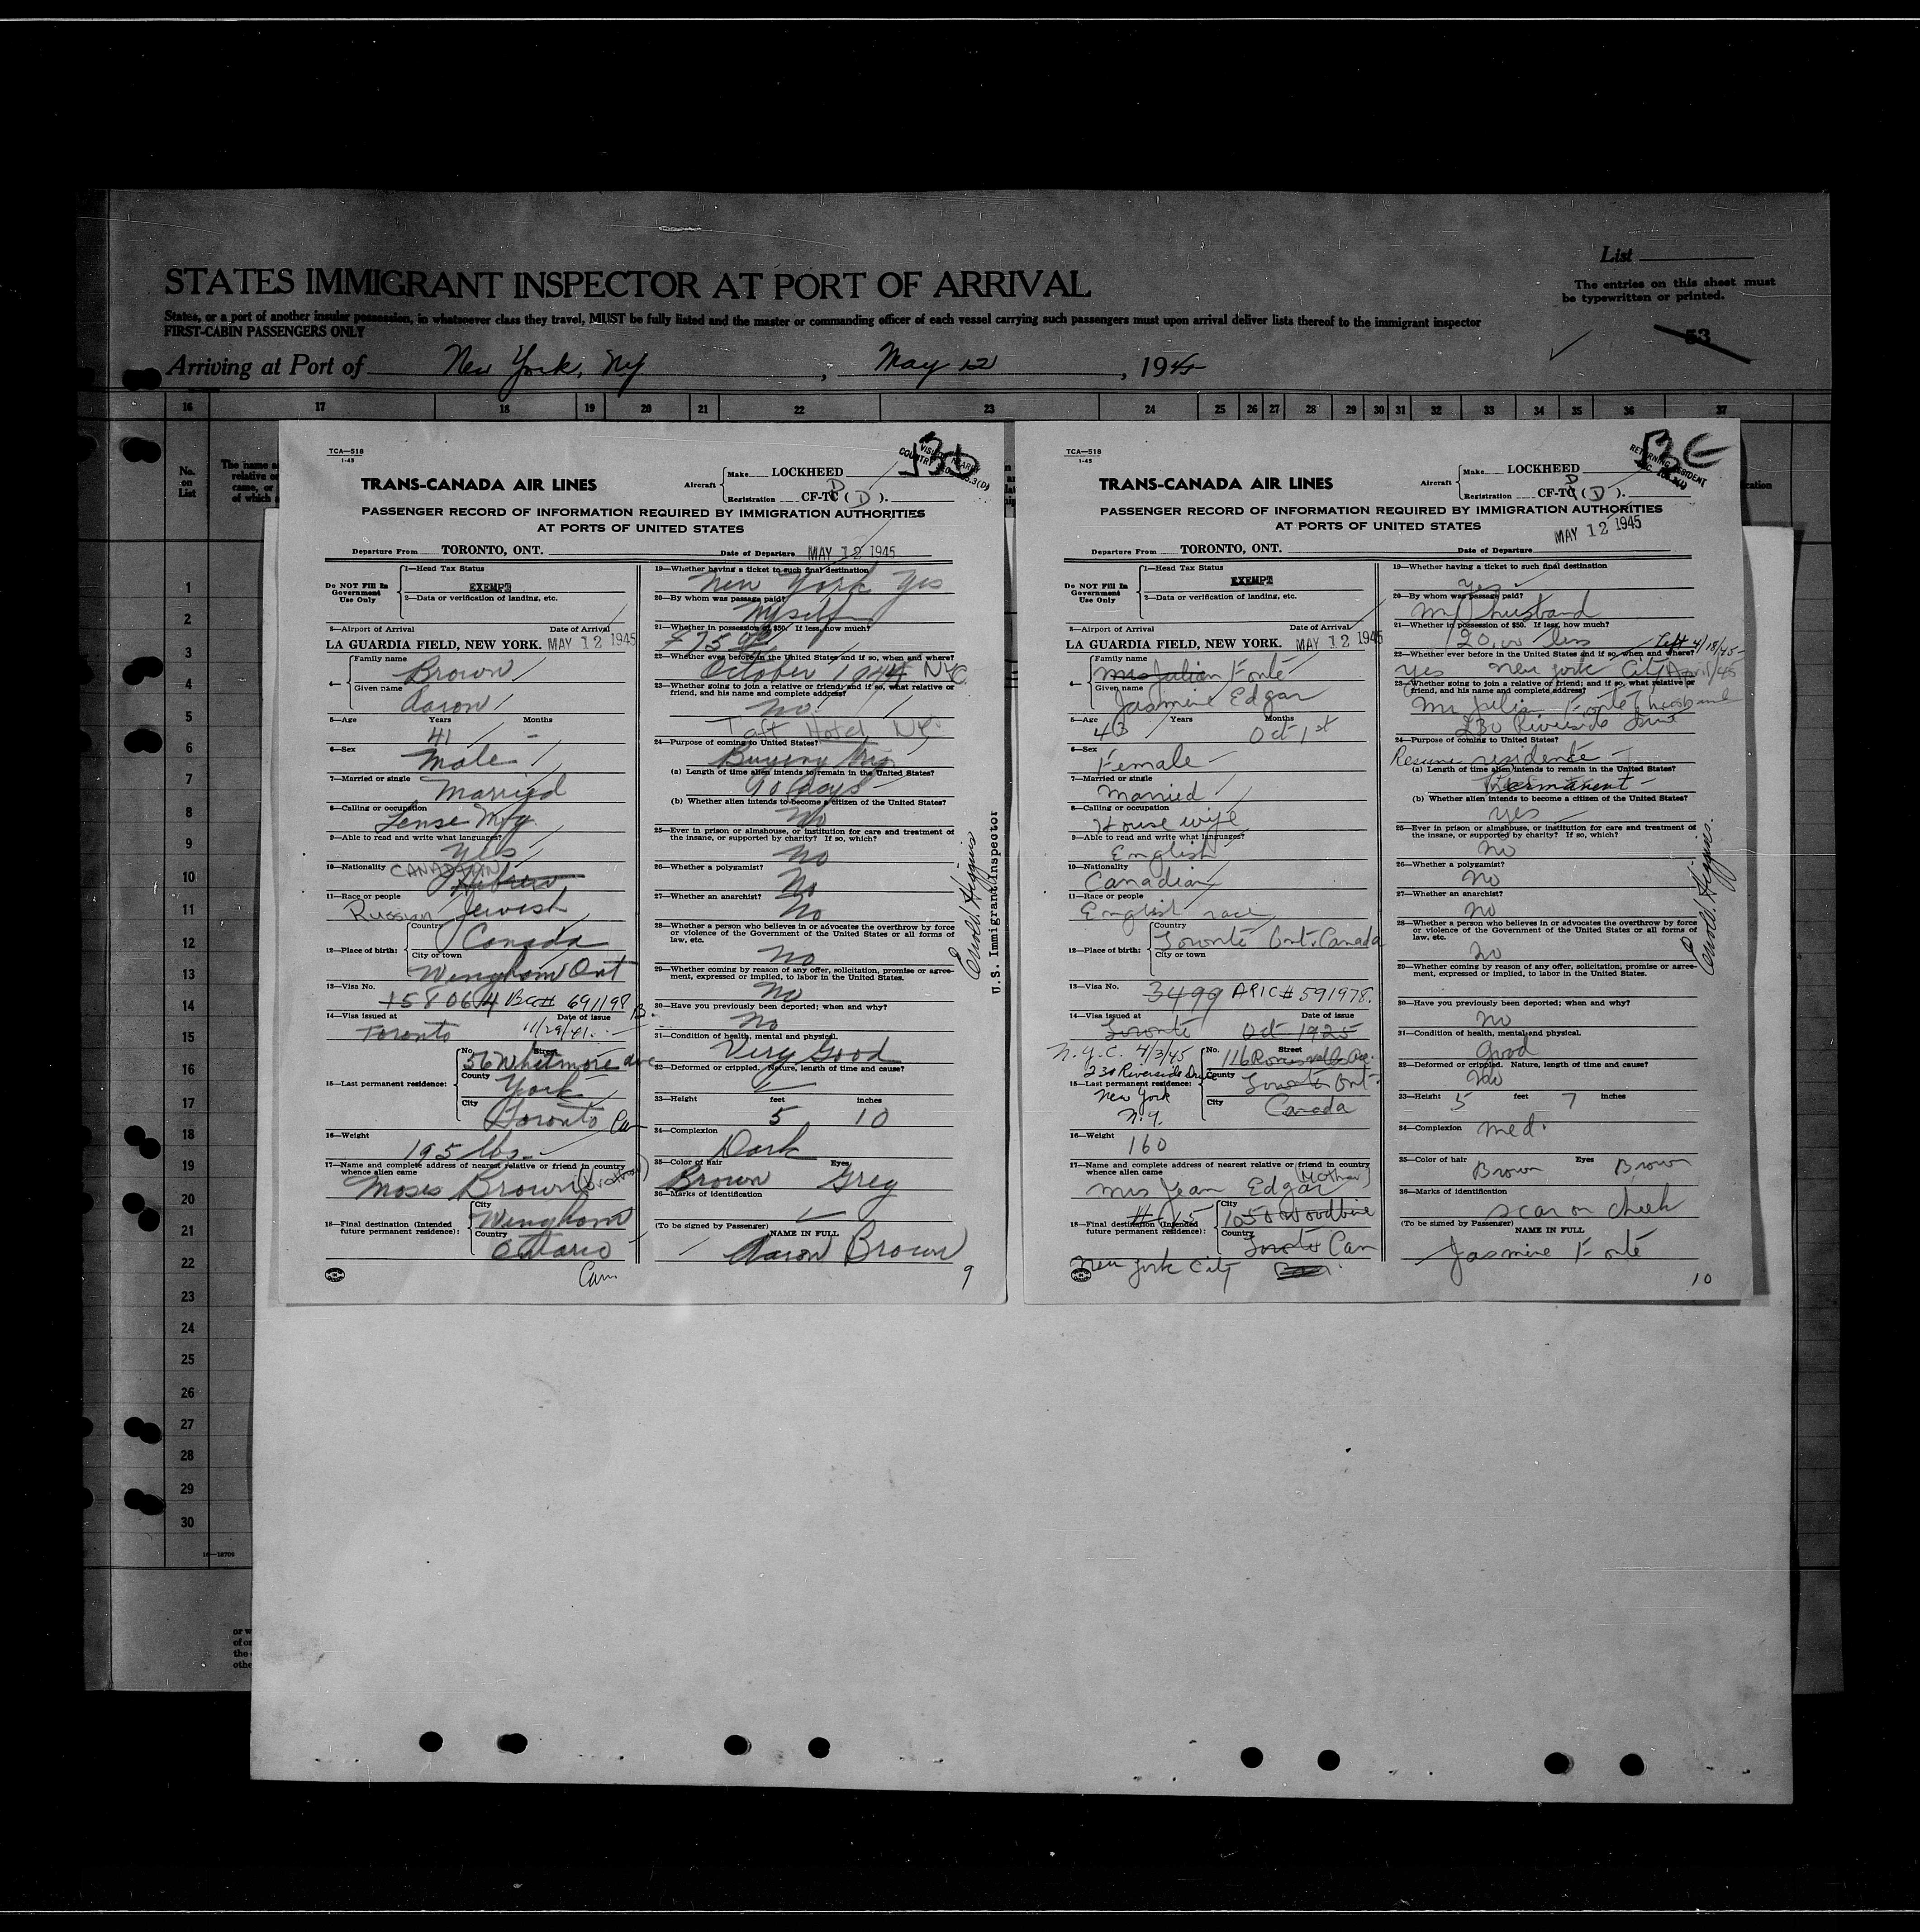 List
STATES IMMIGRANT INSPECTOR AT PORT OF ARRIVAL
The entries on this sheet must
be typewritten or printed.
States, or a port of another insular possession, in whatsoever class they travel, MUST be fully listed and the master or commanding officer of each vessel carrying such passengers must upon arrival deliver lists thereof to the immigrant inspector
FIRST-CABIN PASSENGERS ONLY
53
Arriving at Port of New York, NY, May 12, 1945
16 17 18 19 20 21 22 23 24 25 26 27 28 29 30 31 32 33 34 35 36 37
No.
on
List
The name a
relative or
came, or
of which a
1
2
3
4
5
6
7
8
9
10
11
12
13
14
15
16
17
18
19
20
21
22
23
24
25
26
27
28
29
30
16—18709
or w
of or
the
othe
TCA—518
1-45
TRANS-CANADA AIR LINES
Aircraft
Make LOCKHEED
Registration CF-TC (D).
PASSENGER RECORD OF INFORMATION REQUIRED BY IMMIGRATION AUTHORITIES
AT PORTS OF UNITED STATES
Departure From TORONTO, ONT. Date of Departure MAY 12 1945
Do NOT Fill In
Government
Use Only
1—Head Tax Status
EXEMPT
2—Data or verification of landing, etc.
3—Airport of Arrival Date of Arrival
LA GUARDIA FIELD, NEW YORK. MAY 12 1945
4—
Family name
Brown
Given name
Aaron
5—Age Years Months
41 -
6—Sex
Male
7—Married or single
Married
8—Calling or occupation
Lense Mfg.
9—Able to read and write what languages?
Yes
10—Nationality CANADIAN
Hebrew
11—Race or people
Russian Jewish
12—Place of birth:
Country
Canada
City or town
Wingham Ont
13—Visa No.
158064 BC# 691198
14—Visa issued at Date of issue
Toronto 11/29/41
15—Last permanent residence:
No. Street
56 Whitmore ave
County
York
City
Toronto Can
16—Weight
195 lbs.
17—Name and complete address of nearest relative or friend in country
whence alien came
Moses Brown (brother)
18—Final destination (Intended
future permanent residence):
City
Wingham
Country
Ontario
Can.
19—Whether having a ticket to such final destination
New York Yes
20—By whom was passage paid?
Myself
21—Whether in possession of $50. If less, how much?
$75.00
22—Whether ever before in the United States and if so, when and where?
October 1944 NYC
23—Whether going to join a relative or friend; and if so, what relative or
friend, and his name and complete address?
No.
Taft Hotel NYC
24—Purpose of coming to United States?
Buying trip
(a) Length of time alien intends to remain in the United States?
10 days
(b) Whether alien intends to become a citizen of the United States?
No
25—Ever in prison or almshouse, or institution for care and treatment of
the insane, or supported by charity? If so, which?
No
26—Whether a polygamist?
No
27—Whether an anarchist?
No
28—Whether a person who believes in or advocates the overthrow by force
or violence of the Government of the United States or all forms of
law, etc.
No
29—Whether coming by reason of any offer, solicitation, promise or agree-
ment, expressed or implied, to labor in the United States.
No
30—Have you previously been deported; when and why?
No
31—Condition of health, mental and physical.
Very Good
32—Deformed or crippled. Nature, length of time and cause?
33—Height feet inches
5 10
34—Complexion
Dark
35—Color of hair Eyes
Brown Grey
36—Marks of identification
(To be signed by Passenger) NAME IN FULL
Aaron Brown
9
U.S. Immigrant Inspector
TCA—518
1-45
TRANS-CANADA AIR LINES
Aircraft
Make LOCKHEED
Registration CF-TC (D).
PASSENGER RECORD OF INFORMATION REQUIRED BY IMMIGRATION AUTHORITIES
AT PORTS OF UNITED STATES
Departure From TORONTO, ONT. Date of Departure MAY 12 1945
Do NOT Fill In
Government
Use Only
1—Head Tax Status
EXEMPT
2—Data or verification of landing, etc.
3—Airport of Arrival Date of Arrival
LA GUARDIA FIELD, NEW YORK. MAY 12 1945
4—
Family name
Mrs Julian Fonté
Given name
Jasmine Edgar
5—Age Years Months
43 Oct 1st
6—Sex
Female
7—Married or single
Married
8—Calling or occupation
House wife
9—Able to read and write what languages?
English
10—Nationality
Canadian
11—Race or people
English race
12—Place of birth:
Country
Toronto Ont. Canada
City or town
13—Visa No.
3499 ARIC# 591978.
14—Visa issued at Date of issue
Toronto Oct 1925
N.Y.C. 4/3/45
230 Riverside Drive
15—Last permanent residence:
New York
N.Y.
No. Street
116 Roncesvalles Ave.
County
Toronto Ont.
City
Canada
16—Weight
160
17—Name and complete address of nearest relative or friend in country
whence alien came
Mrs Jean Edgar (Mother)
18—Final destination (Intended
future permanent residence):
City
1050 Woodbine
Country
Toronto Can
New York City
19—Whether having a ticket to such final destination
Yes
20—By whom was passage paid?
My husband
21—Whether in possession of $50. If less, how much?
20.00 less
Left 4/18/45
22—Whether ever before in the United States and if so, when and where?
Yes New York City April/45
23—Whether going to join a relative or friend; and if so, what relative or
friend, and his name and complete address?
Mr Julian Fonté husband
230 Riverside Drive
24—Purpose of coming to United States?
Resume residence
(a) Length of time alien intends to remain in the United States?
Permanent
(b) Whether alien intends to become a citizen of the United States?
Yes
25—Ever in prison or almshouse, or institution for care and treatment of
the insane, or supported by charity? If so, which?
No
26—Whether a polygamist?
No
27—Whether an anarchist?
No
28—Whether a person who believes in or advocates the overthrow by force
or violence of the Government of the United States or all forms of
law, etc.
No
29—Whether coming by reason of any offer, solicitation, promise or agree-
ment, expressed or implied, to labor in the United States.
30—Have you previously been deported; when and why?
No
31—Condition of health, mental and physical.
Good
32—Deformed or crippled. Nature, length of time and cause?
No
33—Height 5 feet 7 inches
34—Complexion med.
35—Color of hair Eyes
Brown Brown
36—Marks of identification
scar on cheek
(To be signed by Passenger) NAME IN FULL
Jasmine Fonté
10